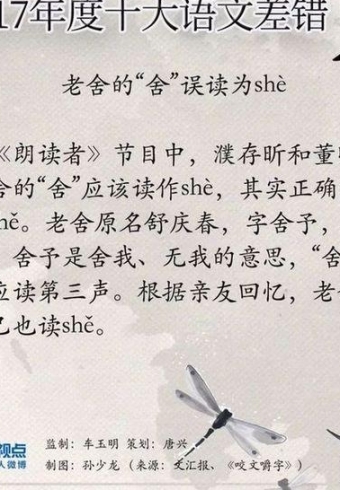 17年度十大语文差错
老舍的“舍”误读为shè
《朗读者》节目中，濮存昕和董
舍的“舍”应该读作shè，其实正确
hě。老舍原名舒庆春，字舍予，
舍予是舍我、无我的意思，“舍
应读第三声。根据亲友回忆，老
己也读shě。
视点 监制：车玉明 策划：唐兴
人微博 制图：孙少龙（来源：文汇报、《咬文嚼字》）